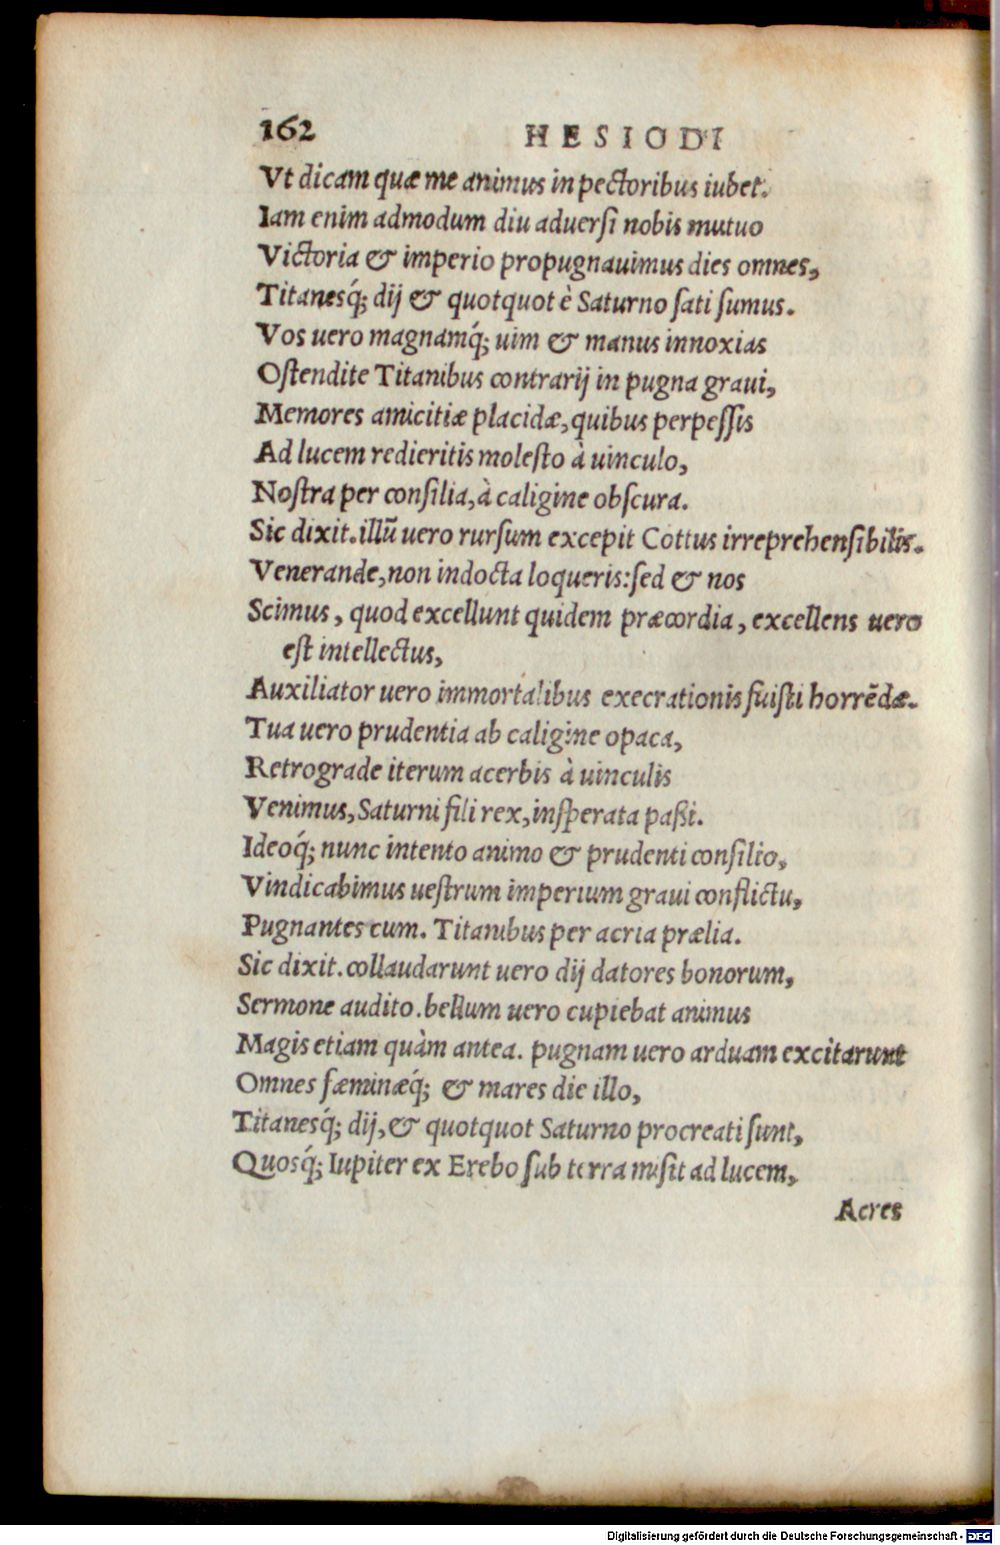 162 HESIODI
Vt dicam quæ me animus in pectoribus iubet.
Iam enim admodum diu aduersi nobis mutuo
Victoria & imperio propugnauimus dies omnes,
Titanesq́; dij & quotquot è Saturno sati sumus.
Vos uero magnamq́; uim & manus innoxias
Ostendite Titanibus contrarij in pugna graui,
Memores amicitiæ placidæ, quibus perpessis
Ad lucem redieritis molesto à uinculo,
Nostra per consilia, à caligine obscura.
Sic dixit. illũ uero rursum excepit Cottus irreprehensibilis.
Venerande, non indocta loqueris: sed & nos
Scimus, quod excellunt quidem præcordia, excellens uero
est intellectus,
Auxiliator uero immortalibus execrationis fuisti horrẽdæ.
Tua uero prudentia ab caligine opaca,
Retrograde iterum acerbis à uinculis
Venimus, Saturni fili rex, insperata paßi.
Ideoq́; nunc intento animo & prudenti consilio,
Vindicabimus uestrum imperium graui conflictu,
Pugnantes cum. Titanibus per acria prælia.
Sic dixit. collaudarunt uero dij datores bonorum,
Sermone audito. bellum uero cupiebat animus
Magis etiam quàm antea. pugnam uero arduam excitarunt
Omnes fæminæq́; & mares die illo,
Titanesq́; dij, & quotquot Saturno procreati sunt,
Quosq́; Iupiter ex Erebo sub terra misit ad lucem,
Acres
Digitalisierung gefördert durch die Deutsche Forschungsgemeinschaft - DFG